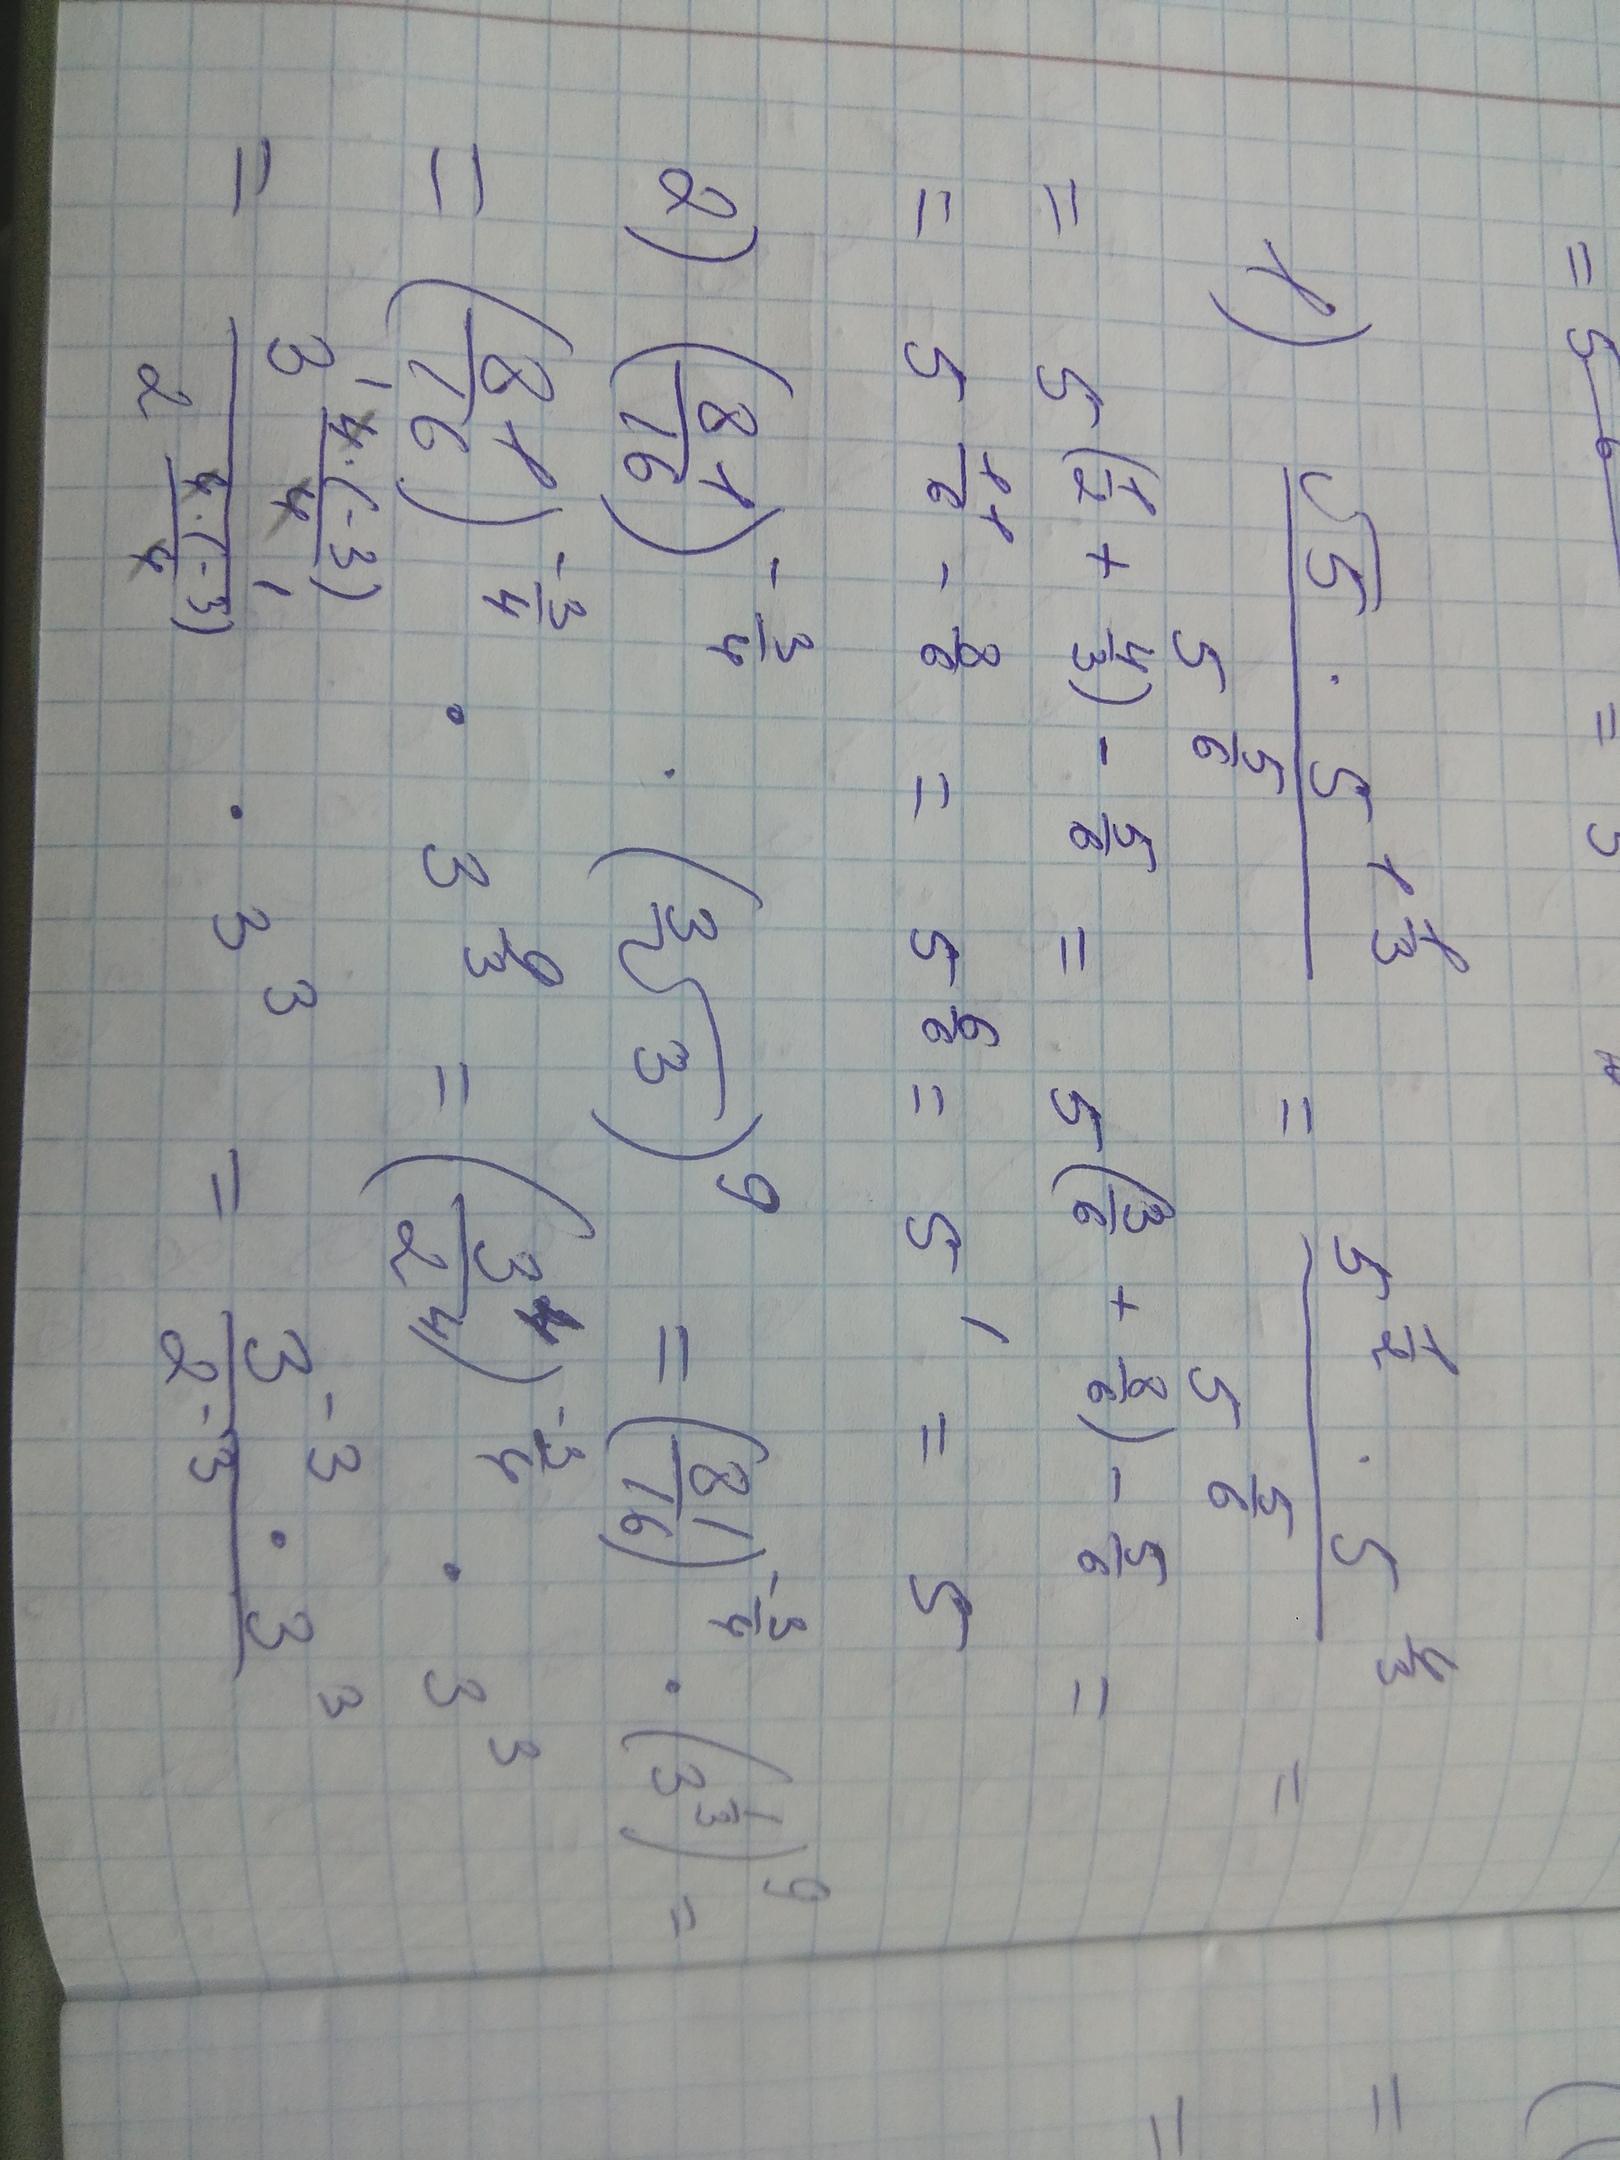 1) (√5 · 5^(1 1/3)) / 5^(5/6) = (5^(1/2) · 5^(4/3)) / 5^(5/6) =
= 5^((1/2 + 4/3) - 5/6) = 5^((3/6 + 8/6) - 5/6) =
= 5^(11/6 - 8/6) = 5^(6/6) = 5^1 = 5
2) (81/16)^(-3/4) · (³√3)^9 = (81/16)^(-3/4) · (3^(1/3))^9 =
= (81/16)^(-3/4) · 3^(9/3) = (3^4/2^4)^(-3/4) · 3^3
= 3^(4·(-3)/4) / 2^(4·(-3)/4) · 3^3 = (3^(-3) · 3^3) / 2^(-3)